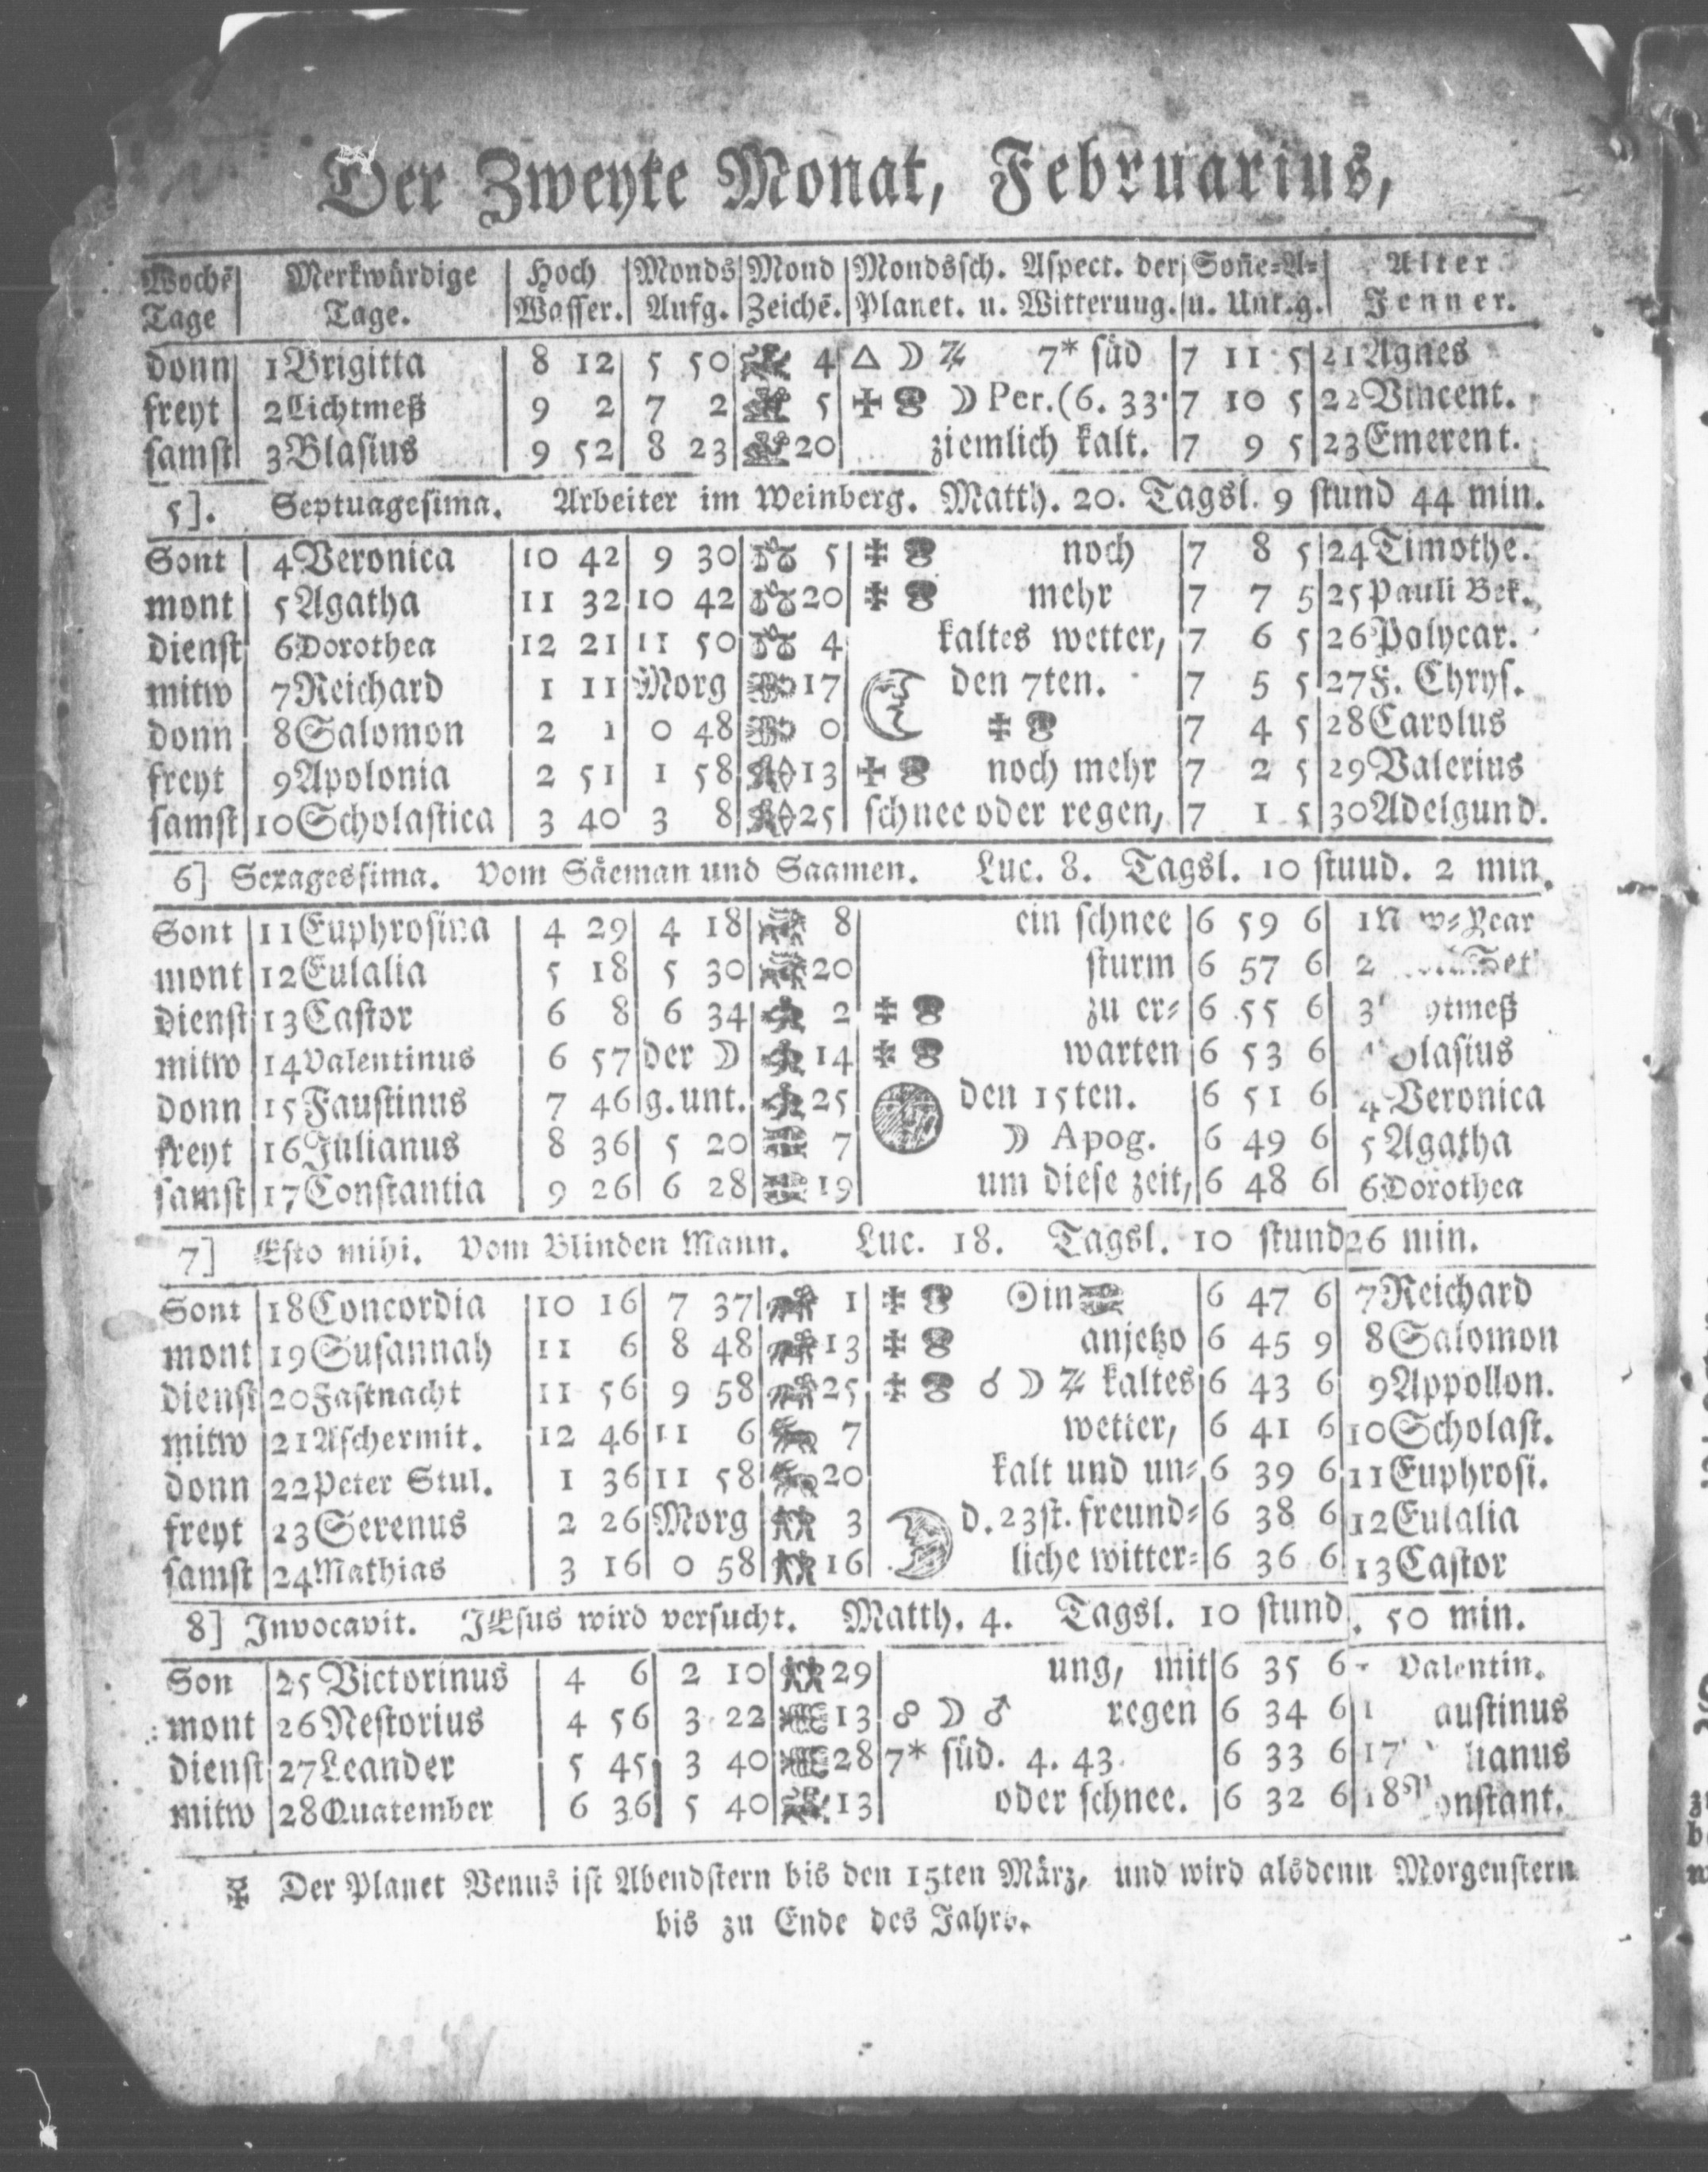 Der Zweyte Monat, Februarius,
Wochē Merkwürdige Hoch Monds Mond Mondssch. Aspect. der Soñe=A= Alter
Tage Tage. Wasser. Aufg. Zeichē. Planet. u. Witterung. u. Unt.g. Jenner.
donn 1 Brigitta 8 12 5 50 4 △ ☽ ♃ 7* süd 7 11 5 21 Agnes
freyt 2 Lichtmeß 9 2 7 2 5 ☽ Per. (6. 33. 7 10 5 22 Vincent.
samst 3 Blasius 9 52 8 23 20 ziemlich kalt. 7 9 5 23 Emerent.
5]. Septuagesima. Arbeiter im Weinberg. Matth. 20. Tagsl. 9 stund 44 min.
Sont 4 Veronica 10 42 9 30 5 noch 7 8 5 24 Timothe.
mont 5 Agatha 11 32 10 42 20 mehr 7 7 5 25 Pauli Bek.
dienst 6 Dorothea 12 21 11 50 4 kaltes wetter, 7 6 5 26 Polycar.
mitw 7 Reichard 1 11 Morg 17 den 7ten. 7 5 5 27 F. Chrys.
donn 8 Salomon 2 1 0 48 0 7 4 5 28 Carolus
freyt 9 Apolonia 2 51 1 58 13 noch mehr 7 2 5 29 Valerius
samst 10 Scholastica 3 40 3 8 25 schnee oder regen, 7 1 5 30 Adelgund.
6] Sexagessima. Vom Säeman und Saamen. Luc. 8. Tagsl. 10 stuud. 2 min.
Sont 11 Euphrosina 4 29 4 18 8 ein schnee 6 59 6 1
mont 12 Eulalia 5 18 5 30 20 sturm 6 57 6 2
dienst 13 Castor 6 8 6 34 2 zu er= 6 55 6 3
mitw 14 Valentinus 6 57 der ☽ 14 warten 6 53 6
donn 15 Faustinus 7 46 g. unt. 25 den 15ten. 6 51 6 4 Veronica
freyt 16 Julianus 8 36 5 20 7 ☽ Apog. 6 49 6 5 Agatha
samst 17 Constantia 9 26 6 28 19 um diese zeit, 6 48 6 6 Dorothea
7] Esto mihi. Vom Blinden Mann. Luc. 18. Tagsl. 10 stund 26 min.
Sont 18 Concordia 10 16 7 37 1 ☉ in 6 47 6 7 Reichard
mont 19 Susannah 11 6 8 48 13 anjetzo 6 45 9 8 Salomon
dienst 20 Fastnacht 11 56 9 58 25 ☌ ☽ ♃ kaltes 6 43 6 9 Appollon.
mitw 21 Aschermit. 12 46 11 6 7 wetter, 6 41 6 10 Scholast.
donn 22 Peter Stul. 1 36 11 58 20 kalt und un= 6 39 6 11 Euphrosi.
freyt 23 Serenus 2 26 Morg 3 d. 23st. freund= 6 38 6 12 Eulalia
samst 24 Mathias 3 16 0 58 16 liche witter= 6 36 6 13 Castor
8] Invocavit. JEsus wird versucht. Matth. 4. Tagsl. 10 stund. 50 min.
Son 25 Victorinus 4 6 2 10 29 ung, mit 6 35 6 Valentin.
mont 26 Nestorius 4 56 3 22 13 ☍ ☽ ♂ regen 6 34 6 1 austinus
dienst 27 Leander 5 45 3 40 28 7* süd. 4. 43. 6 33 6 17 lianus
mitw 28 Quatember 6 36 5 40 13 oder schnee. 6 32 6 18 onstant.
Der Planet Venus ist Abendstern bis den 15ten März, und wird alsdenn Morgenstern
bis zu Ende des Jahrs.